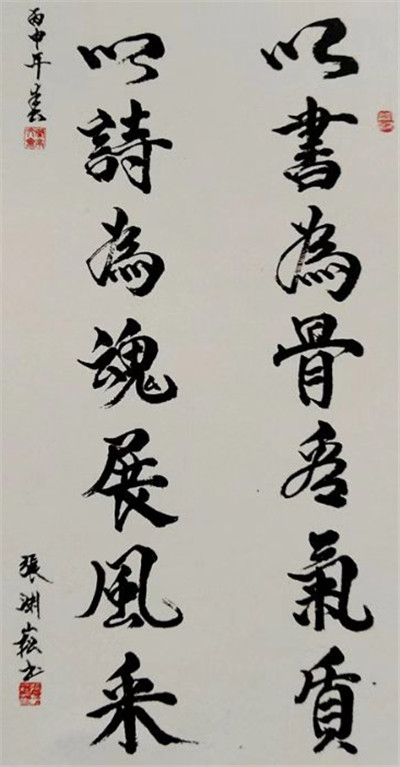 以書為骨氣質
以詩為魂展風采
丙申年春
張渊崧书